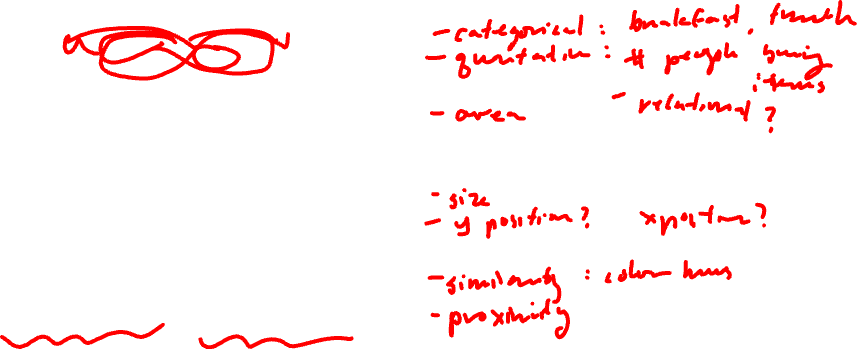 - categorical : breakfast, lunch
- quantitative : # people buying items
- area
- relational ?
- size
- y position? x position?
- similarity : color hues
- proximity